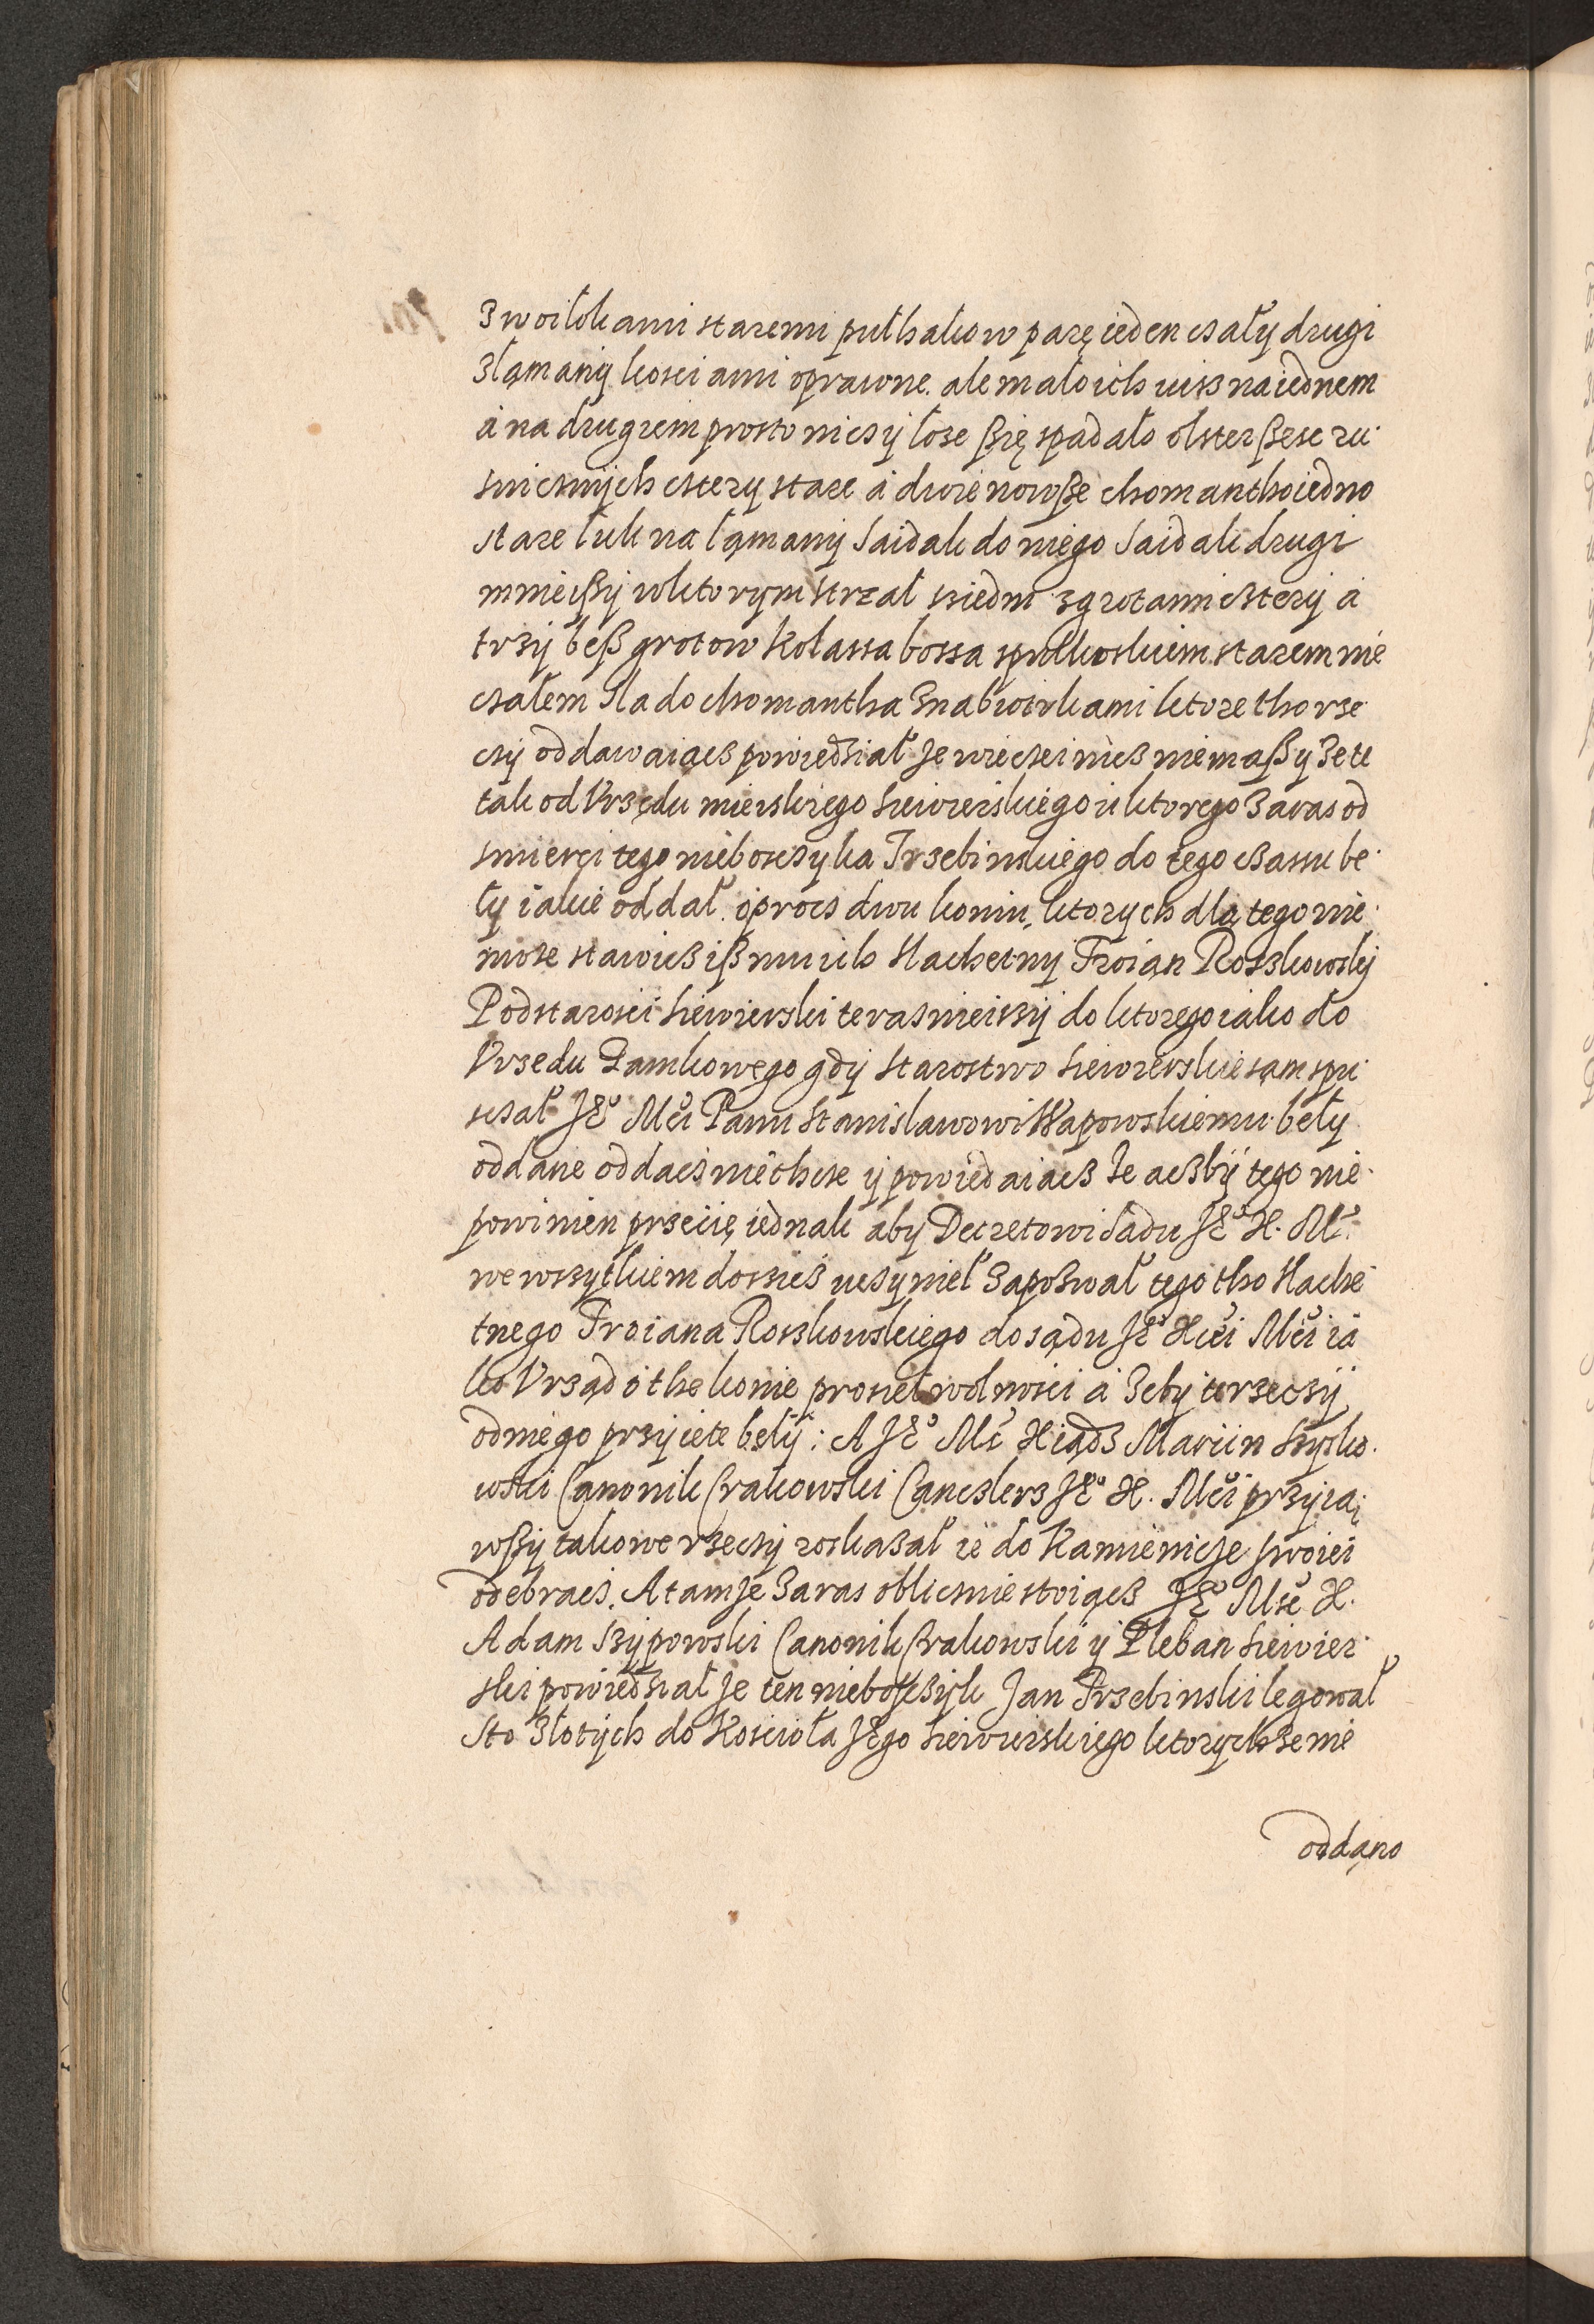 Z woilokami staremi pułhakow parę ieden czały drugi
złamany kosciami oprawne. ale mało ich iusz na iednem
a na drugiem prosto nicz y łoze ßię spadało olster ßesc ru
snicznych cztery stare a dwie nowße chomantho iedno
stare łuk na łąmany Saidak do niego Saidak drugi
mnieyßy w ktorym strzał siedm z grotami cztery a
trzy beß grotow Kołassa bossa s pułkoskiem starem nie
czałem Sla do chomantha z nabiotrkami ktore tho rze
czy oddawaiacz powiedział Je wieczei nicz nie maß y ze te
tak od Vrzędu mieiskiego siewierskiego u ktorego zaraz od
smierci tego nieboszczyka Trzebinskiego do tego czassu be
ły iakie oddał. oprocz dwu koniu, ktorych dla tego nie
moze stawicz iß mu ich Slachetny Troian Roszkowsky
Podstarosci siewierski teraznieiszy do ktorego iako do
Vrzedu Zamkowego gdy starostwo siewierskie sam spu
sczał JE Mci Panu Stanisławowi Wapowskiemu beły
oddane oddacz nie chcze y powiedaiacz Je aczby tego nie
powinien przecię iednak aby Decretowi sadu JE X. M
we wszytkiem dossicz uczynieł zapozwał tego tho Slache
tnego Troiana Roszkowskiego do sądu JE Xcei Mci ia
ko Vrząd o the konie prosieł wolnosci a zeby te rzeczy
od niego przyiete beły: A JE Mc Xiądz Marcin Szysko
wski Canonik Crakowski Canczlerz JE X. Mci przyią
wßy takowe rzeczy roskazał ie do Kamienicze swoiei
odebracz. A tamJe zaraz obliczniestoiącz JE Msc X.
Adam Szypowski Canonik Crakowski y Pleban siewier
ski powiedział Je ten nieboszczyk Jan Trzebinski legował
Sto złotych do Kosciola JEgo siewierskiego ktorych ze nie
oddano